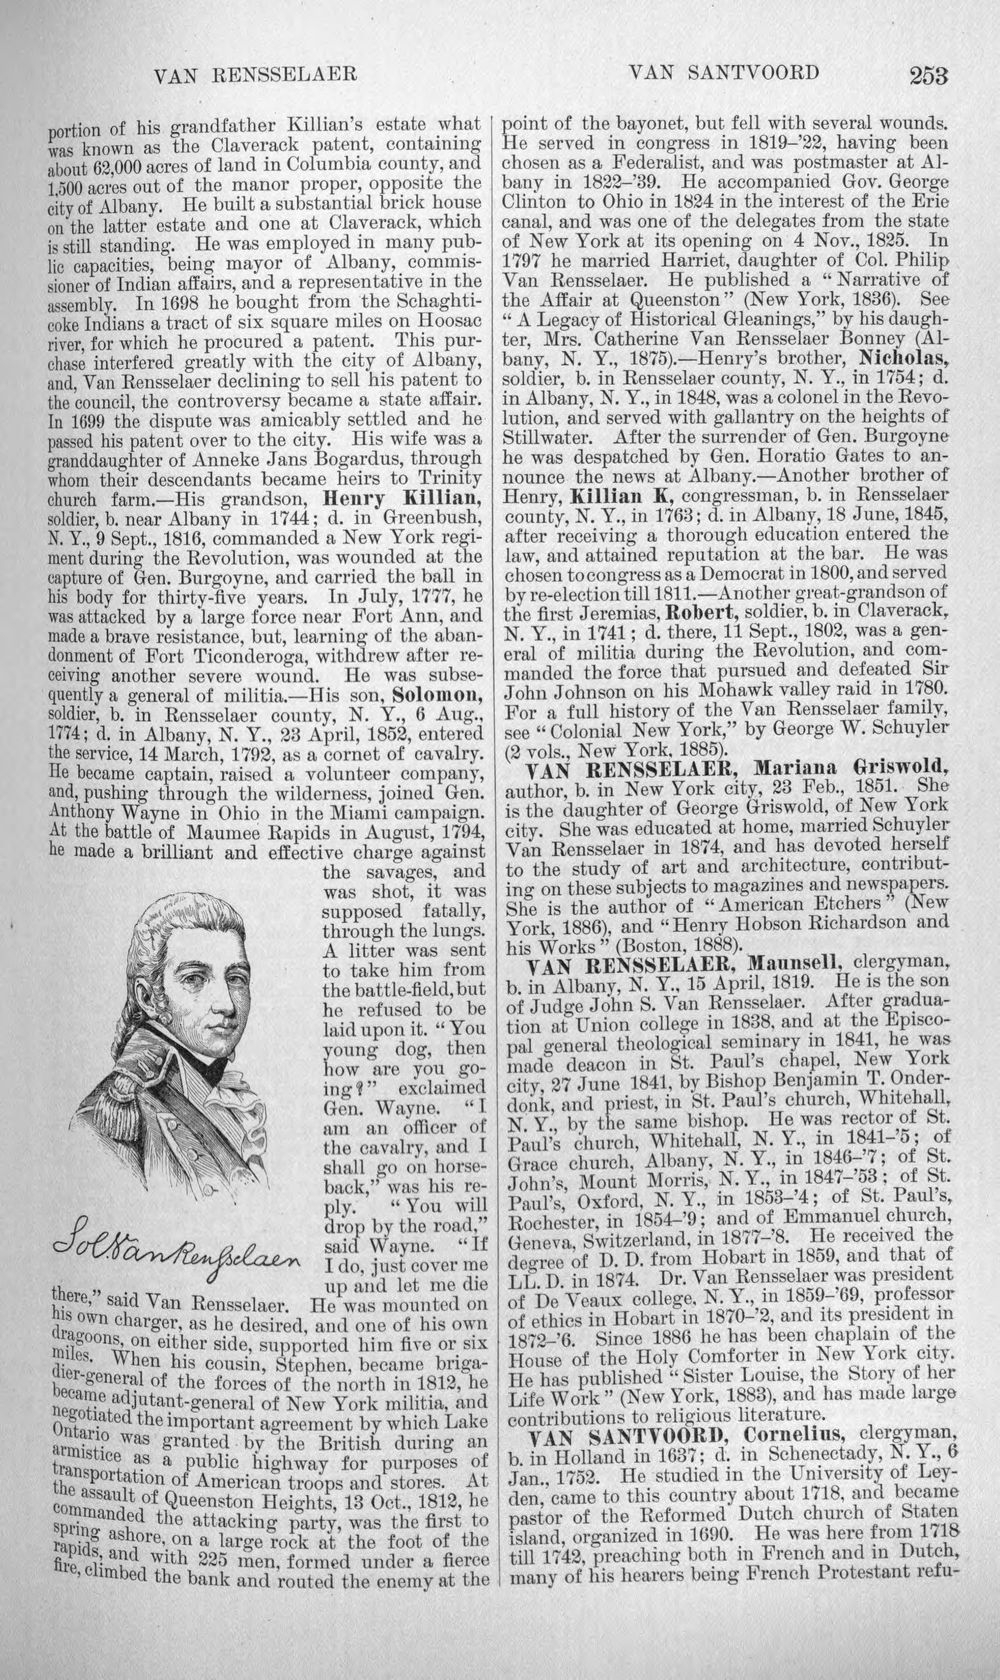 VAN RENSSELAER
VAN SANTVOORD
253
portion of his grandfather Killian's estate what
was known as the Claverack patent, containing
about 62,000 acres of land in Columbia county, and
1,500 acres out of the manor proper, opposite the
city of Albany. He built a substantial brick house
on the latter estate and one at Claverack, which
is still standing. He was employed in many pub-
lic capacities, being mayor of Albany, commis-
sioner of Indian affairs, and a representative in the
assembly. In 1698 he bought from the Schaghti-
coke Indians a tract of six square miles on Hoosac
river, for which he procured a patent. This pur-
chase interfered greatly with the city of Albany,
and, Van Rensselaer declining to sell his patent to
the council, the controversy became a state affair.
In 1699 the dispute was amicably settled and he
passed his patent over to the city. His wife was a
granddaughter of Anneke Jans Bogardus, through
whom their descendants became heirs to Trinity
church farm.—His grandson, Henry Killian,
soldier, b. near Albany in 1744; d. in Greenbush,
N. Y., 9 Sept., 1816, commanded a New York regi-
ment during the Revolution, was wounded at the
capture of Gen. Burgoyne, and carried the ball in
his body for thirty-five years. In July, 1777, he
was attacked by a large force near Fort Ann, and
made a brave resistance, but, learning of the aban-
donment of Fort Ticonderoga, withdrew after re-
ceiving another severe wound. He was subse-
quently a general of militia.—His son, Solomon,
soldier, b. in Rensselaer county, N. Y., 6 Aug.,
1774; d. in Albany, N. Y., 23 April, 1852, entered
the service, 14 March, 1792, as a cornet of cavalry.
He became captain, raised a volunteer company,
and, pushing through the wilderness, joined Gen.
Anthony Wayne in Ohio in the Miami campaign.
At the battle of Maumee Rapids in August, 1794,
he made a brilliant and effective charge against
the savages, and
was shot, it was
supposed fatally,
through the lungs.
A litter was sent
to take him from
the battle-field, but
he refused to be
laid upon it. "You
young dog, then
how are you go-
ing?" exclaimed
Gen. Wayne. "I
am an officer of
the cavalry, and I
shall go on horse-
back," was his re-
ply. "You will
drop by the road,"
said Wayne. "If
I do, just cover me
up and let me die
Sol Van Rensselaer
there," said Van Rensselaer. He was mounted on
his own charger, as he desired, and one of his own
dragoons, on either side, supported him five or six
miles. When his cousin, Stephen, became briga-
dier-general of the forces of the north in 1812, he
became adjutant-general of New York militia, and
negotiated the important agreement by which Lake
Ontario was granted by the British during an
armistice as a public highway for purposes of
transportation of American troops and stores. At
the assault of Queenston Heights, 13 Oct., 1812, he
commanded the attacking party, was the first to
spring ashore, on a large rock at the foot of the
rapids, and with 225 men, formed under a fierce
fire, climbed the bank and routed the enemy at the
point of the bayonet, but fell with several wounds.
He served in congress in 1819-'22, having been
chosen as a Federalist, and was postmaster at Al-
bany in 1822-'39. He accompanied Gov. George
Clinton to Ohio in 1824 in the interest of the Erie
canal, and was one of the delegates from the state
of New York at its opening on 4 Nov., 1825. In
1797 he married Harriet, daughter of Col. Philip
Van Rensselaer. He published a "Narrative of
the Affair at Queenston" (New York, 1836). See
"A Legacy of Historical Gleanings," by his daugh-
ter, Mrs. Catherine Van Rensselaer Bonney (Al-
bany, N. Y., 1875).—Henry's brother, Nicholas,
soldier, b. in Rensselaer county, N. Y., in 1754; d.
in Albany, N. Y., in 1848, was a colonel in the Revo-
lution, and served with gallantry on the heights of
Stillwater. After the surrender of Gen. Burgoyne
he was despatched by Gen. Horatio Gates to an-
nounce the news at Albany.—Another brother of
Henry, Killian K, congressman, b. in Rensselaer
county, N. Y., in 1763; d. in Albany, 18 June, 1845,
after receiving a thorough education entered the
law, and attained reputation at the bar. He was
chosen to congress as a Democrat in 1800, and served
by re-election till 1811.—Another great-grandson of
the first Jeremias, Robert, soldier, b. in Claverack,
N. Y., in 1741; d. there, 11 Sept., 1802, was a gen-
eral of militia during the Revolution, and com-
manded the force that pursued and defeated Sir
John Johnson on his Mohawk valley raid in 1780.
For a full history of the Van Rensselaer family,
see "Colonial New York," by George W. Schuyler
(2 vols., New York, 1885).
VAN RENSSELAER, Mariana Griswold,
author, b. in New York city, 23 Feb., 1851. She
is the daughter of George Griswold, of New York
city. She was educated at home, married Schuyler
Van Rensselaer in 1874, and has devoted herself
to the study of art and architecture, contribut-
ing on these subjects to magazines and newspapers.
She is the author of "American Etchers" (New
York, 1886), and "Henry Hobson Richardson and
his Works" (Boston, 1888).
VAN RENSSELAER, Maunsell, clergyman,
b. in Albany, N. Y., 15 April, 1819. He is the son
of Judge John S. Van Rensselaer. After gradua-
tion at Union college in 1838, and at the Episco-
pal general theological seminary in 1841, he was
made deacon in St. Paul's chapel, New York
city, 27 June 1841, by Bishop Benjamin T. Onder-
donk, and priest, in St. Paul's church, Whitehall,
N. Y., by the same bishop. He was rector of St.
Paul's church, Whitehall, N. Y., in 1841-'5; of
Grace church, Albany, N. Y., in 1846-'7; of St.
John's, Mount Morris, N. Y., in 1847-'53; of St.
Paul's, Oxford, N. Y., in 1853-'4; of St. Paul's,
Rochester, in 1854-'9; and of Emmanuel church,
Geneva, Switzerland, in 1877-'8. He received the
degree of D. D. from Hobart in 1859, and that of
LL. D. in 1874. Dr. Van Rensselaer was president
of De Veaux college, N. Y., in 1859-'69, professor
of ethics in Hobart in 1870-'2, and its president in
1872-'6. Since 1886 he has been chaplain of the
House of the Holy Comforter in New York city.
He has published "Sister Louise, the Story of her
Life Work" (New York, 1883), and has made large
contributions to religious literature.
VAN SANTVOORD, Cornelius, clergyman,
b. in Holland in 1637; d. in Schenectady, N. Y., 6
Jan., 1752. He studied in the University of Ley-
den, came to this country about 1718, and became
pastor of the Reformed Dutch church of Staten
island, organized in 1690. He was here from 1718
till 1742, preaching both in French and in Dutch,
many of his hearers being French Protestant refu-